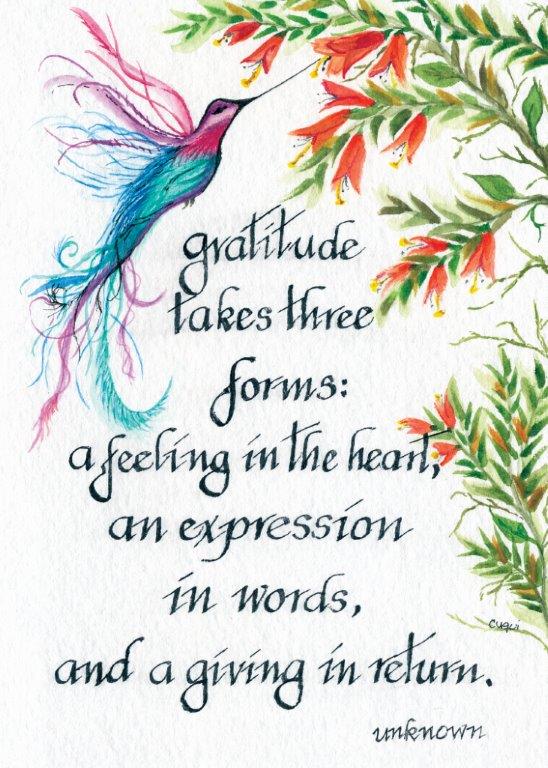 gratitude
takes three
forms:
a feeling in the heart,
an expression
in words,
and a giving in return.
cuqui
unknown